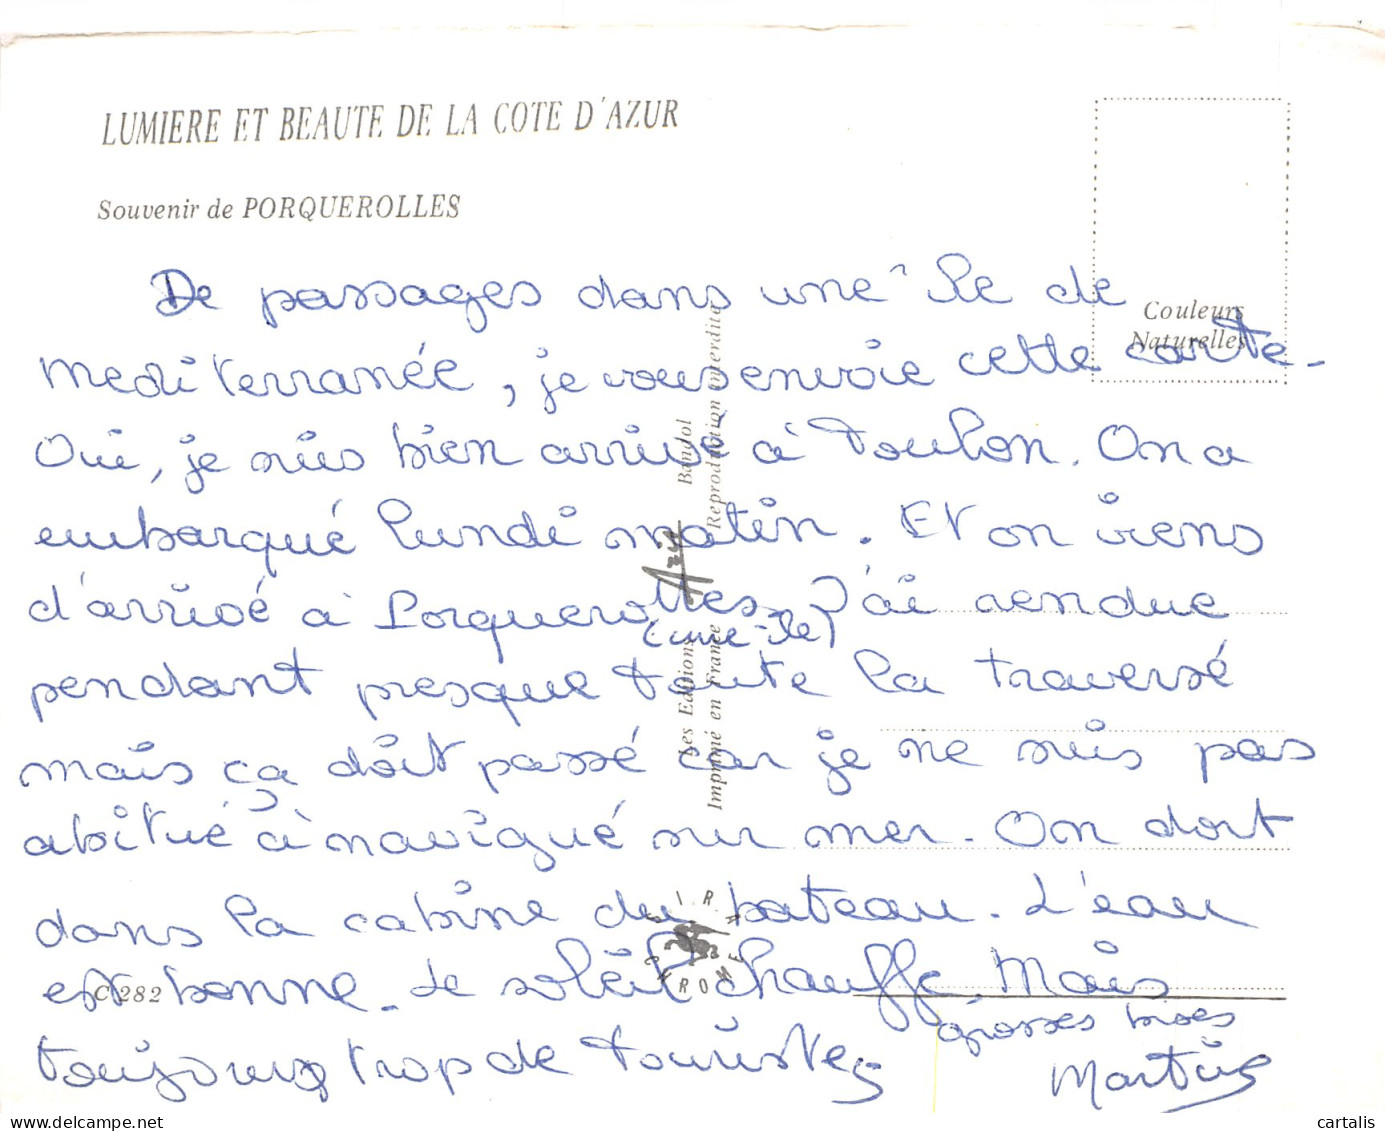 LUMIERE ET BEAUTE DE LA COTE D'AZUR
Souvenir de PORQUEROLLES
Couleurs
Naturelles
De passages dans une île de
mediterranée, je vous envoie cette carte.
Oui, je suis bien arrivé à Toulon. On a
embarqué lundi matin. Et on viens
d'arrivé à Porquerolles. J'ai rendue
(une île)
pendant presque toute la traversé
mais ça doit passé car je ne suis pas
abitué à navigué sur mer. On dort
dans la cabine du bateau. L'eau
est bonne. Le soleil chauffe. Mais
toujours trop de touristes
grosses bises
Martine
C 282
Les Editions Azur Bandol
Imprimé en France Reproduction interdite